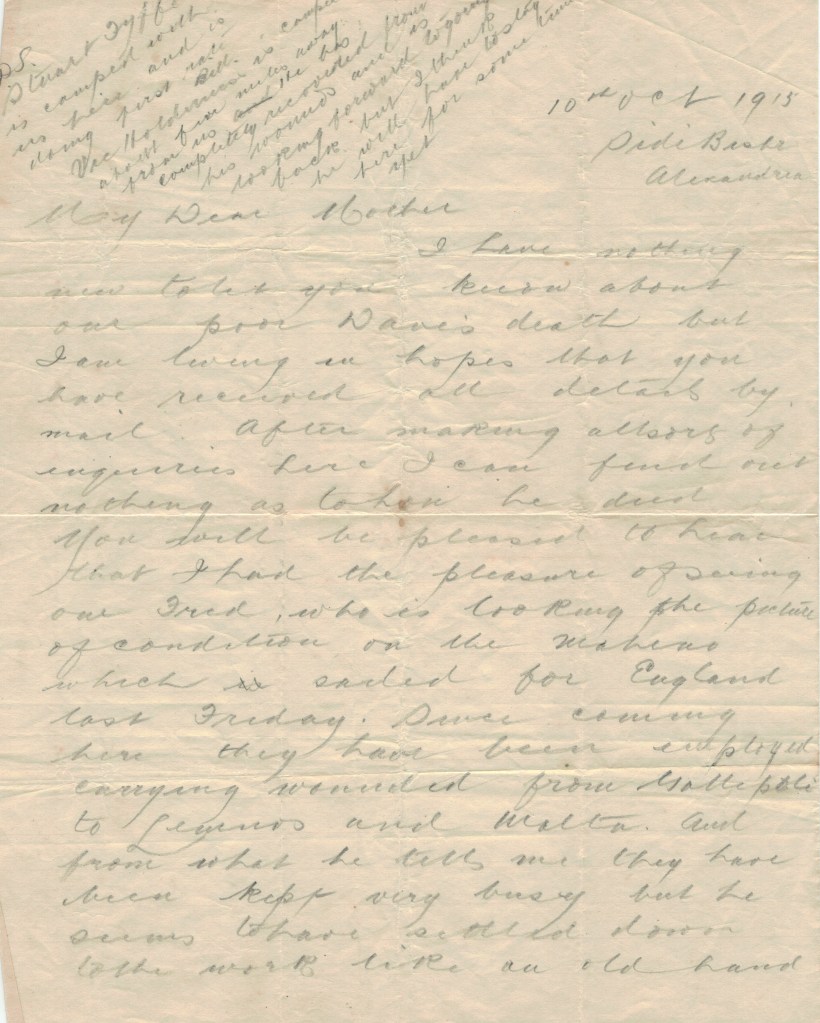 PS.
Stuart Fyffe
is camped with
us here and is
doing first rate
Vic Holdsworth is camped
about five miles away
from us and he has
completely recovered from
his wounds and is
looking forward to going
back. but I think
he will have to stay
here for some time
yet
10th Oct 1915
Sidi Bishr
Alexandria
My Dear Mother
I have nothing
new to let you know about
our poor Dave's death but
I am living in hopes that you
have received all details by
mail. After making all sorts of
inquiries here I can find out
nothing as to how he died
You will be pleased to hear
that I had the pleasure of seeing
our Fred, who is looking the picture
of condition on the Maheno
which sailed for England
last Friday. Since coming
here they have been employed
carrying wounded from Gallipoli
to Lemnos and Malta. And
from what he tells me they have
been kept very busy but he
seems to have settled down
to the work like an old hand